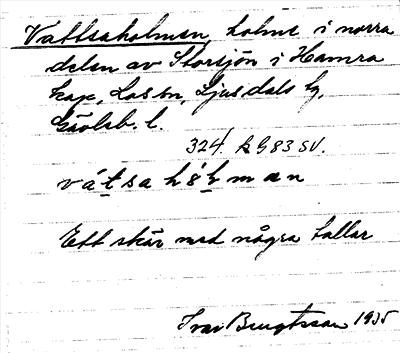 Vattsaholmen, holme i norra
delen av Storsjön i Hamra
kap, Los sn, Ljusdals tg,
Gävleb. l.
324. kG 83 SV.
Ett skär med några tallar
Ivar Bengtsson 1935